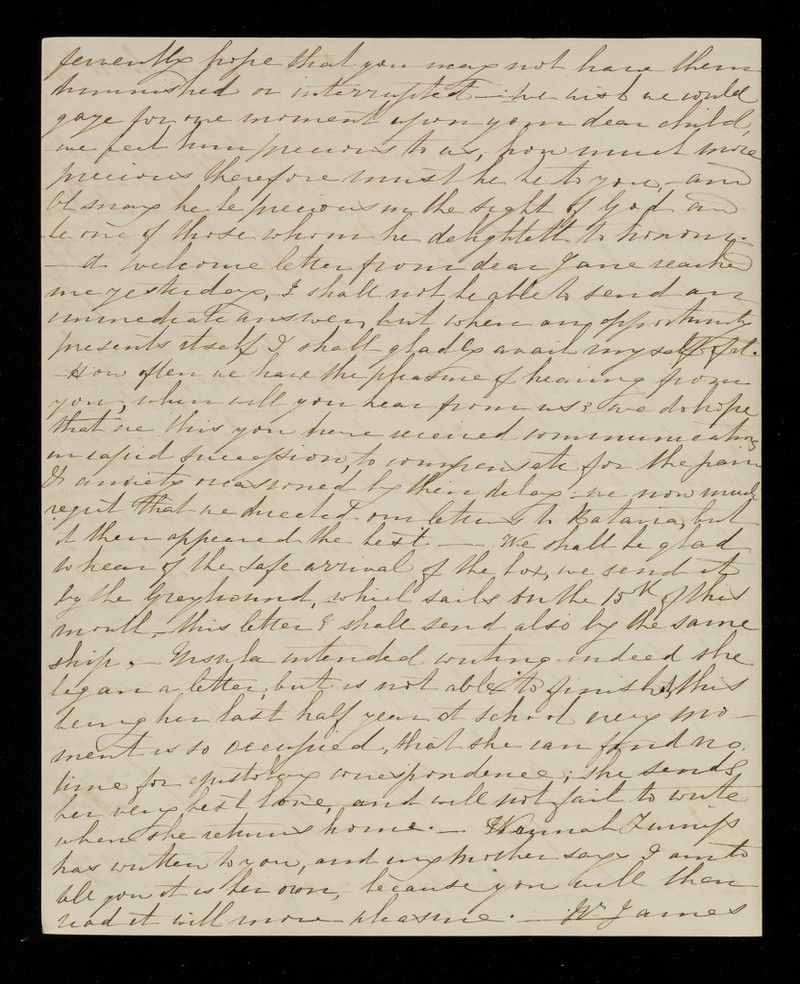 fervently hope that you may not have them
diminished or interrupted - we wish we could
gaze for one moment upon your dear child,
we feel him precious to us, how much more
precious therefore must he be to you, - and
Oh may he be precious in the sight of God and
be one of those whom he delighteth to honour.
- A welcome letter from dear Jane reached
me yesterday, I shall not be able to send an
immediate answer, but when any opportunity
presents itself I shall gladly avail myself of it.
- How often we have the pleasure of hearing from
you, when will you hear from us? we do hope
that ere this you have received communications
in rapid succession, to compensate for the pain
& anxiety occasioned by their delay - we now much
regret that we directed our letters to Batavia, but
it then appeared the best. - We shall be glad
to hear of the safe arrival of the box, we send it
by the Greyhound, which sails on the 15th of this
month - this letter I shall send also by the same
ship. - Ursula intended writing indeed she
began a letter, but is not able to finish it, this
being her last half year at school every mo-
ment is so occupied, that she can find no
time for epistolary correspondence; she sends
her very best love, and will not fail to write
when she returns home. - Hannah
has written to you, and my mother says I am to
tell you it is her own, because you will then
read it with more pleasure. - Mr James